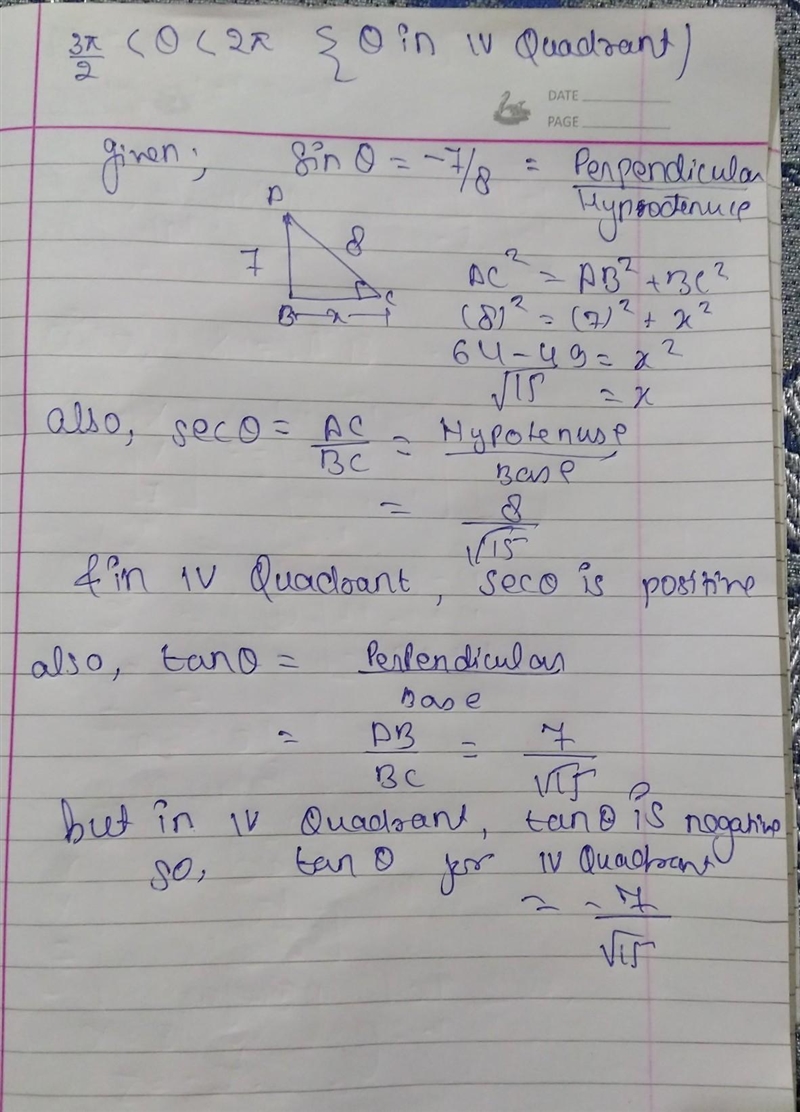 3π/2 < θ < 2π { θ in IV Quadrant)
DATE
PAGE
given; sin θ = -7/8 = Perpendicular/Hypootenuse
A
7 8
B x C
AC² = AB² + BC²
(8)² = (7)² + x²
64 - 49 = x²
√15 = x
also, secθ = AC/BC = Hypotenuse/Base
= 8/√15
& in IV Quadrant, secθ is positive
also, tanθ = Perpendicular/Base
= AB/BC = 7/√15
but in IV Quadrant, tanθ is nogative
so, tanθ for IV Quadrant
= -7/√15